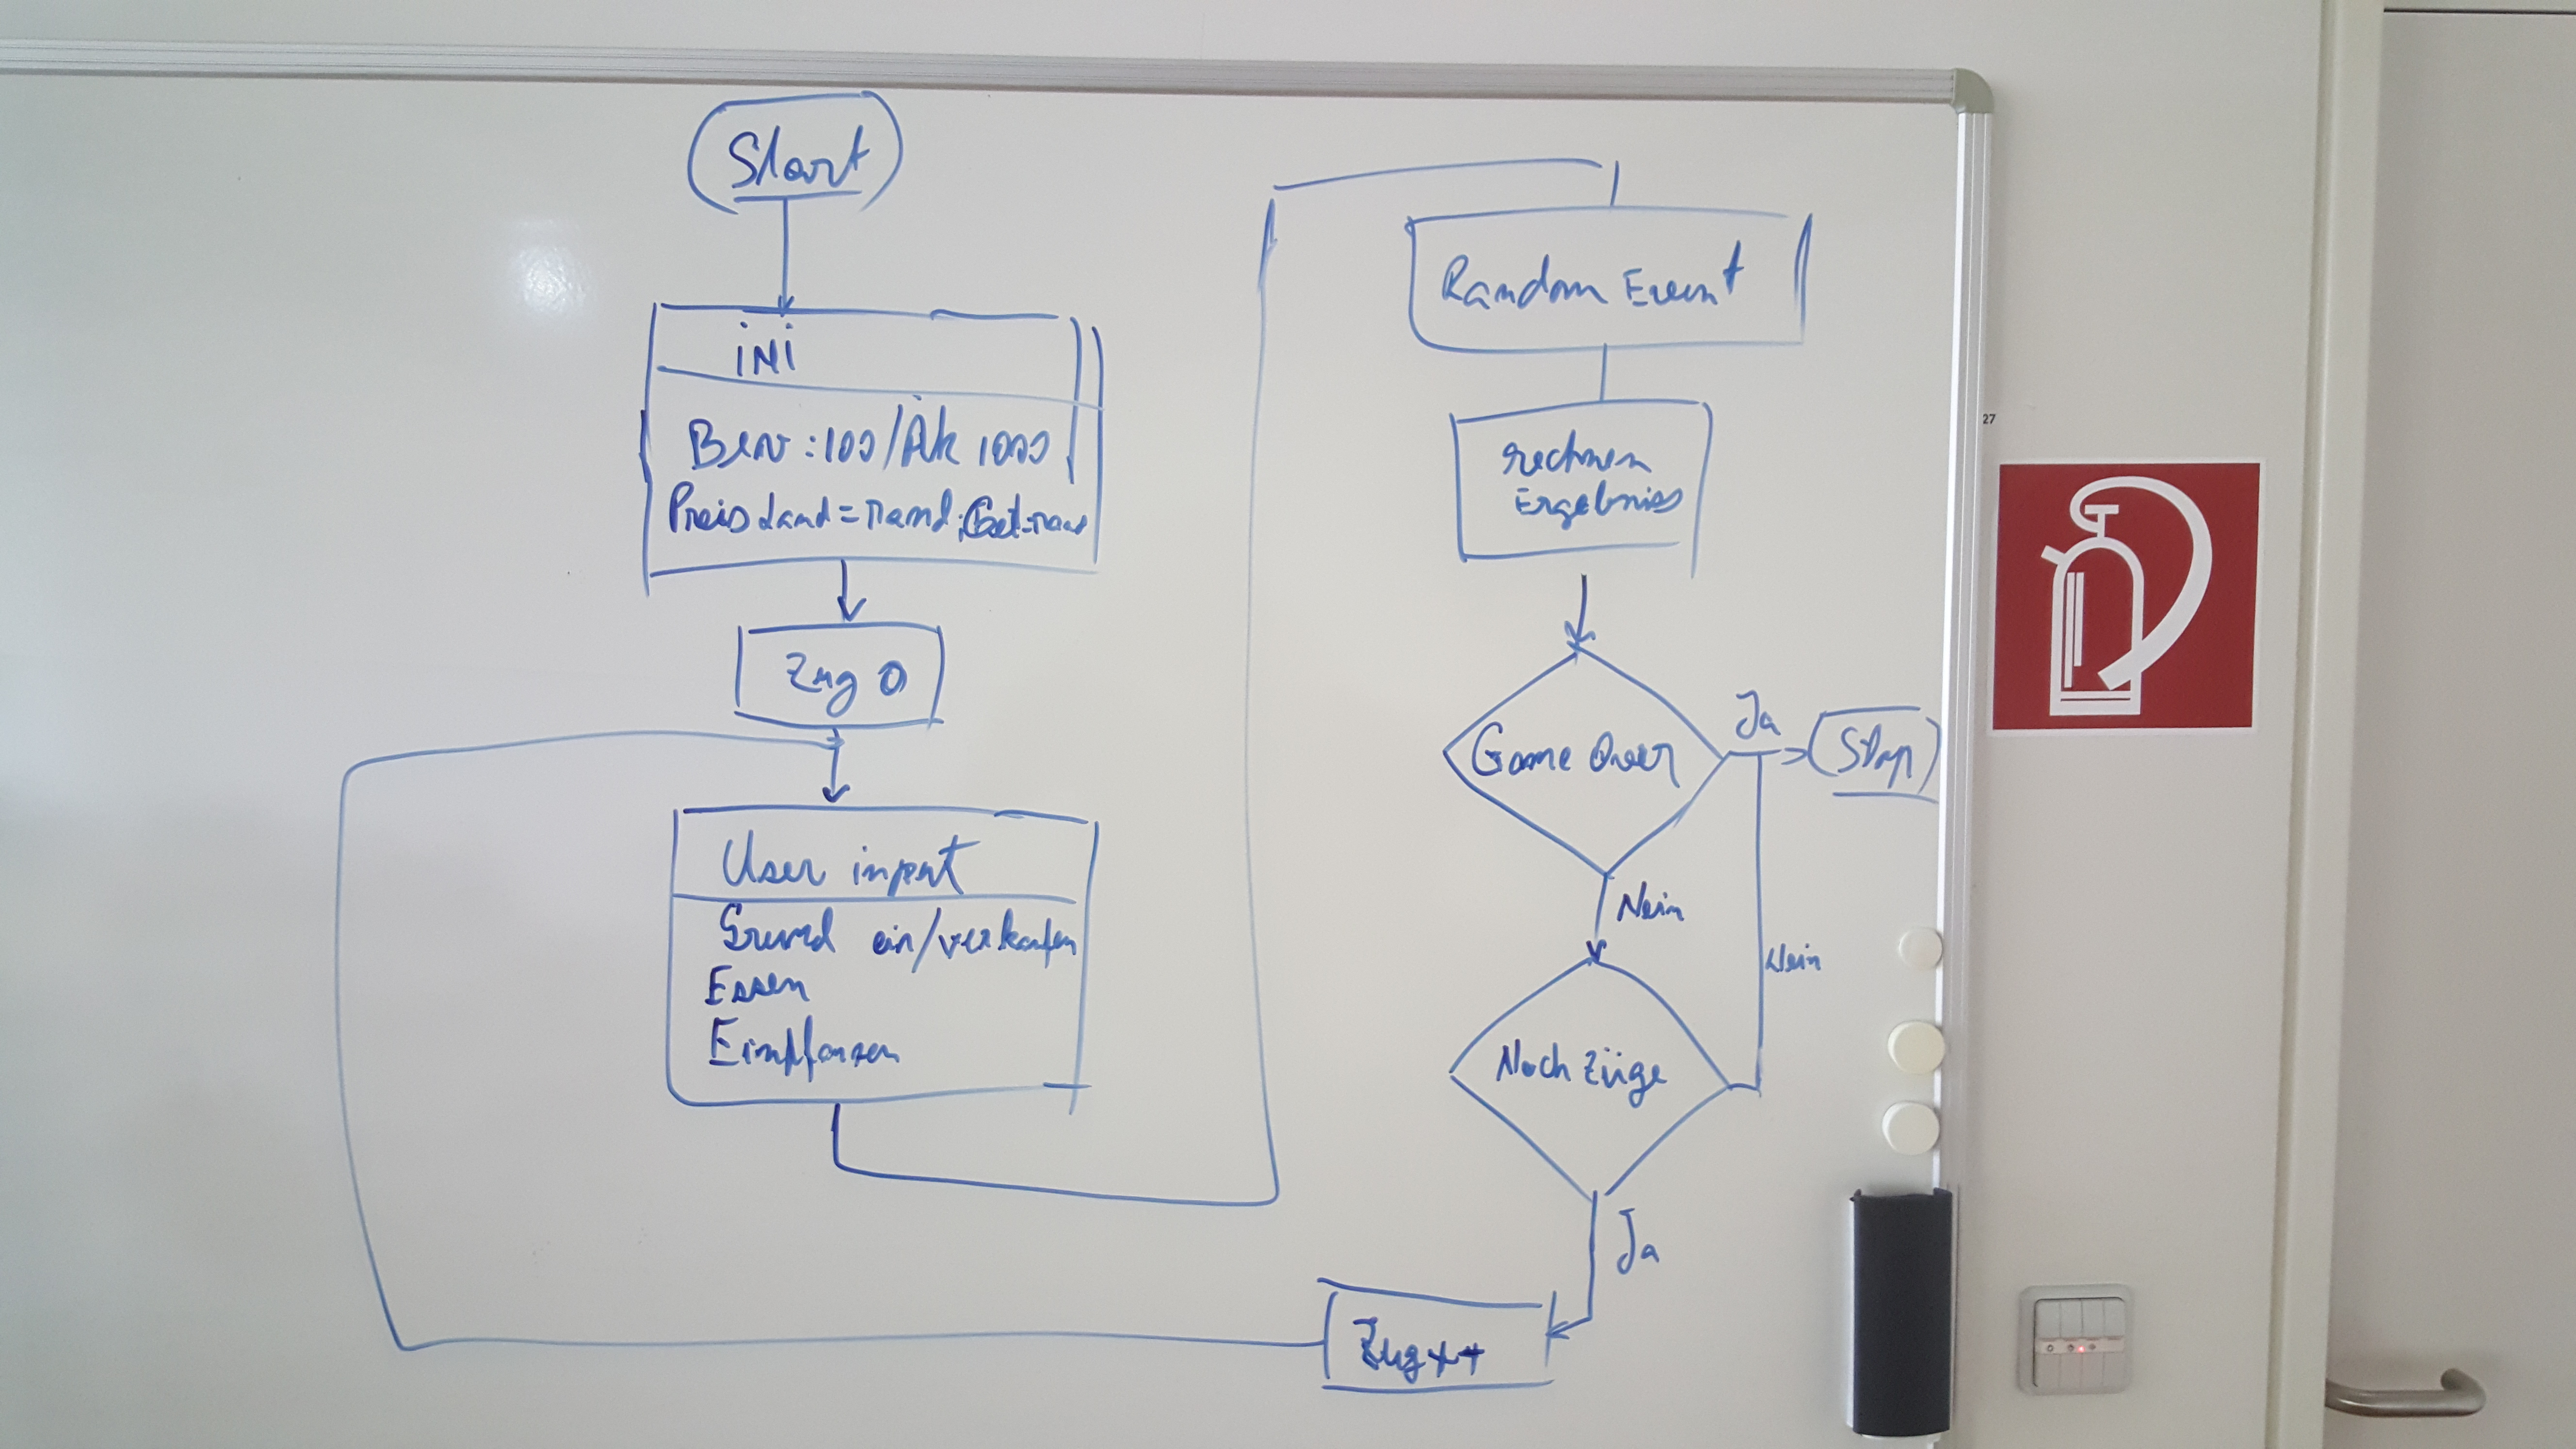 Start
iNi
Bev: 100/Äk 1000
Preis Land = rand;
Zug 0
User input
Grund ein/verkaufen
Essen
Einpflanzen
Random Event
rechnen
Ergebniss
Game Over
Ja
Stop
Nein
Nein
Noch Züge
Ja
Zug ++
27